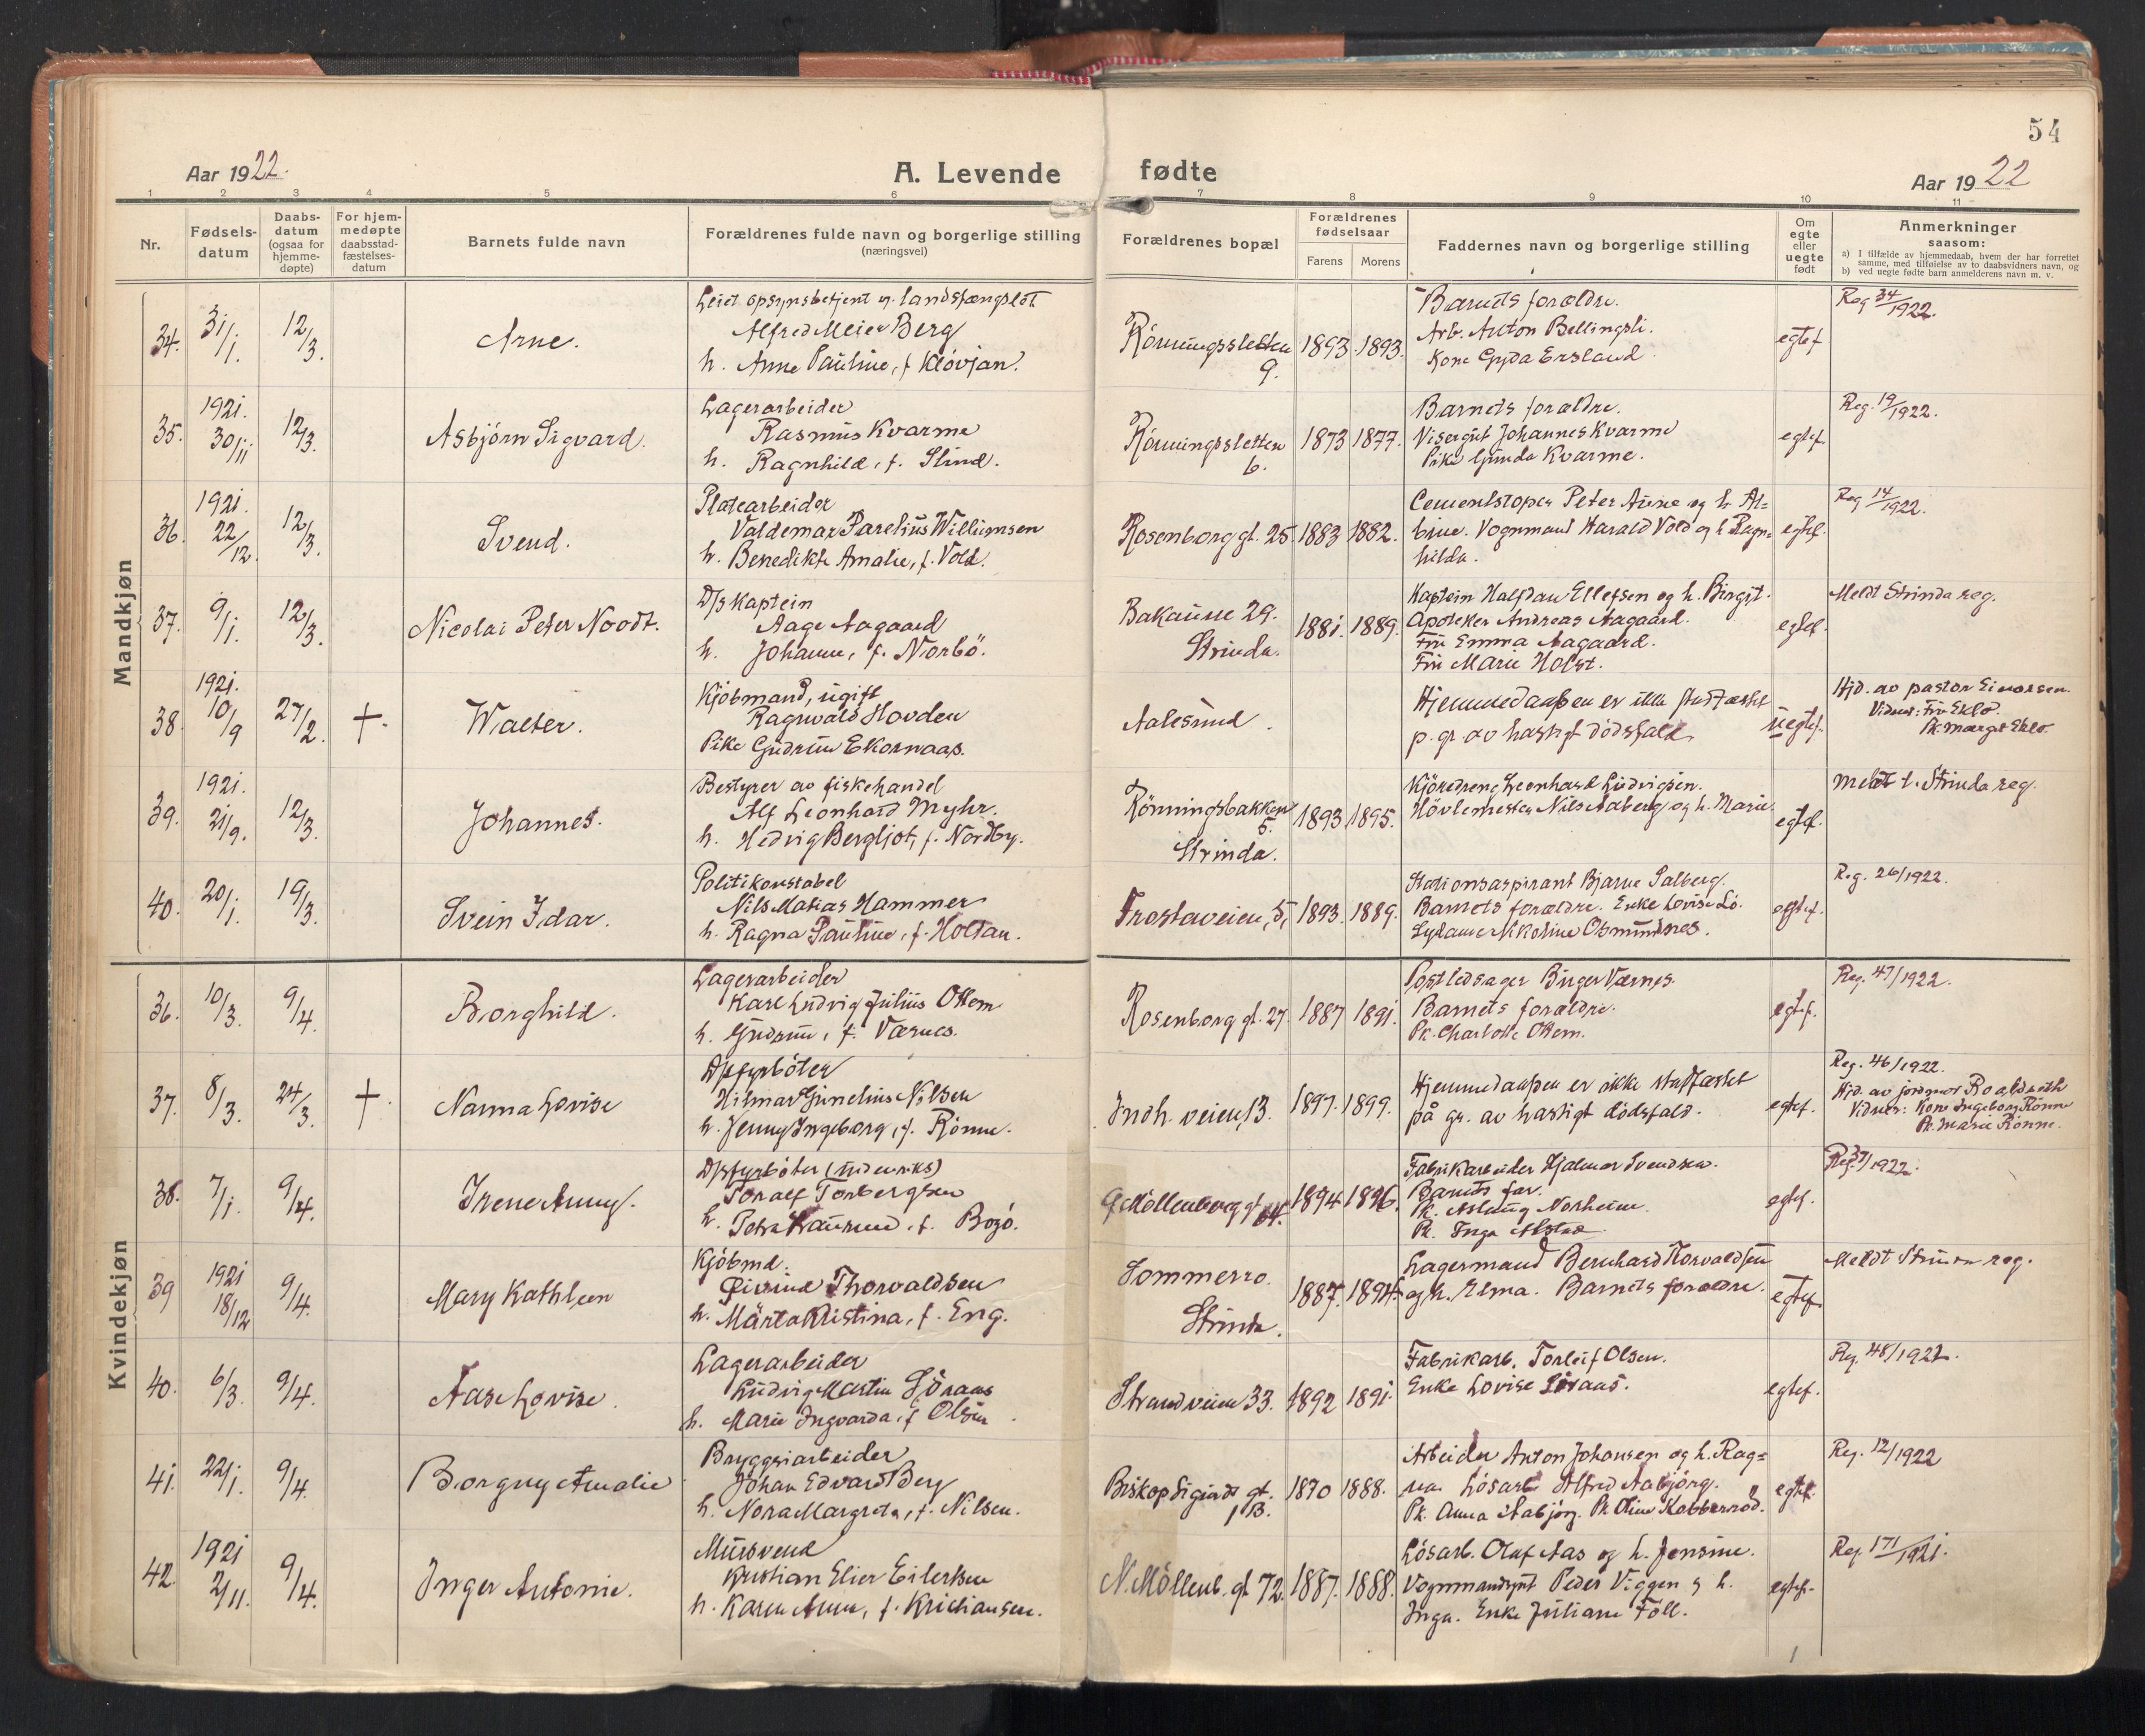 54
Aar 1922.
A. Levende fødte
Aar 1922
1 2 3 4 5 6 7 8 9 10 11
Nr.
Fødselsdatum
Daabsdatum (ogsaa for hjemmedøpte)
For hjemmedøpte daabsstadfæstelsesdatum
Barnets fulde navn
Forældrenes fulde navn og borgerlige stilling
(næringsvei)
Forældrenes bopæl
Forældrenes fødselsaar
Farens Morens
Faddernes navn og borgerlige stilling
Om egte eller uegte født
Anmerkninger
saasom:
a) I tilfælde av hjemmedaab, hvem der har forrettet
samme, med tilføielse av to daabsvidners navn, og
b) ved uegte fødte barn anmelderens navn m. v.
Mandkjøn
34. 31/1. 12/3. Arne.
Leiet opsynsbetjent v. landsfængslet
Alfred Meier Berg
h. Anne Pauline, f. Kløvjan.
Rönningsletten 9. 1893 1893.
Barnets forældre.
Arb. Anton Bellingsli.
Kone Gyda Ersland
egtef
Reg 34/1922.
35. 1921. 30/11 12/3. Asbjörn Sigvard.
Lagerarbeider
Rasmus Kvarme
h. Ragnhild, f. Slind.
Rönningsletten 6. 1873 1877.
Barnets forældre.
Visergut Johannes Kvarme
Pike Gunda Kvarme.
egtef.
Reg. 19/1922.
36. 1921. 22/12. 12/3. Svend.
Platearbeider
Valdemar Parelius Willumsen
h. Benedikte Amalie, f. Vold.
Rosenborg gt. 25. 1883 1882.
Cementstöper Peter Aune og h. Al-
bine. Vognmand Harald Vold og h. Ragn-
hilda.
egtef.
Reg 14/1922.
37. 9/1. 12/3. Nicolai Peter Noodt.
D/s Kaptein
Aage Aagaard
h. Johanne, f. Norbö.
Bakaune 29.
Strinda. 1881. 1889.
Kaptein Halfdan Ellefsen og h. Birgit.
Apoteker Andreas Aagaard.
Fru Emma Aagaard.
Fru Marie Holst.
egtef.
Meldt Strinda reg.
38. 1921. 10/9 27/2. +. Walter.
Kjöbmand, ugift
Ragnvald Hovden
Pike Gudrun Ekornaas.
Aalesund.
Hjemmedaapen er ikke stadfæstet
p. gr. av hastigt dödsfald
uegtef.
Hjd. av pastor Einarsen.
Vidner: Fru Eklo.
Pk. Margit Eklo.
39. 1921. 21/9. 12/3. Johannes.
Bestyrer av fiskehandel
Alf Leonhard Myhr.
h. Hedvig Bergljot, f. Nordby.
Rönningsbakken 5.
Strinda. 1893 1895.
Kjöredreng Leonhard Ludvigsen.
Hövlemester Nils Aaberg og h. Marie.
egtef.
Meldt t. Strinda reg.
40. 20/1. 19/3. Svein Idar.
Politikonstabel
Nils Matias Hammer
h. Ragna Pauline, f. Holtan.
Frostaveien, 5, 1893. 1889.
Stationsaspirant Bjarne Salberg.
Barnets forældre. Enke Lovise Lö.
Sydame Nikoline Osmundnes.
egtef.
Reg. 26/1922.
Kvindekjøn
36. 10/3. 9/4. Borghild.
Lagerarbeider
Karl Ludvig Julius Ottem
h. Gudrun, f. Værnes.
Rosenborg gt. 27. 1887 1891.
Postledsager Birger Værnes.
Barnets forældre.
Pk. Charlotte Ottem.
egtef.
Reg. 47/1922.
37. 8/3. 24/3. +. Nanna Lovise
D/s fyrböter
Hilmar Gunelius Nilsen
h. Jenny Ingeborg, f. Rönne.
Indh. veien, 13. 1897. 1899.
Hjemmedaapen er ikke stadfæstet
på gr. av hastigt dödsfald.
egtef.
Reg. 46/1922.
Hjd. av jordmor Roaldseth
Vidner: Kone Ingeborg Rönne
Pk. Marie Rönne.
38. 7/1. 9/4. Irene Anny.
D/s fyrböter (udenriks)
Toralf Torbergsen
h. Petra, f. Bogö.
Möllenberg gt 64. 1894 1896.
Fabrikarbeider Hjalmar Svendsen.
Barnets far.
Pk. Aslaug Norheim.
Pk. Inga Alstad
egtef.
Reg. 37/1922.
39 1921 18/12 9/4. Mary Kathleen
Kjöbmd.
Öivind Thorvaldsen
h. Märta Kristina, f. Eng.
Sommerro.
Strinda. 1887. 1894.
Lagermand Bernhard Torvaldsen
og h. Elma. Barnets forældre.
egtef.
Meldt Strinda reg.
40. 6/3. 9/4. Aase Lovise.
Lagerarbeider
Ludvig Martin Söraas
h. Marie Ingvarda, f. Olsen.
Strandveien 33. 1892 1891.
Fabrikarb. Torleif Olsen.
Enke Lovise Söraas.
egtef.
Reg. 48/1922.
41. 22/1. 9/4. Borgny Amalie
Bryggeriarbeider
Johan Edvard Berg
h. Nora Margrete, f. Nilsen.
Biskop Sigurds gt. 1B. 1870 1888.
Arbeider Anton Johansen og h. Rag-
na. Lösarb. Alfred Aabjörg.
Pk. Anna Aabjörg. Pk. Oline Kobberröd.
egtef.
Reg. 12/1922
42. 1921 2/11. 9/4. Inger Antonie.
Mursvend
Kristian Elier Eilertsen
h. Karen Anna, f. Kristiansen.
N. Möllenb. gt 72. 1887. 1888.
Lösarb. Olaf Aas og h. Jensine.
Vognmandsgut Peder Viggen og h.
Inga. Enke Juliane Föll.
egtef.
Reg 171/1921.